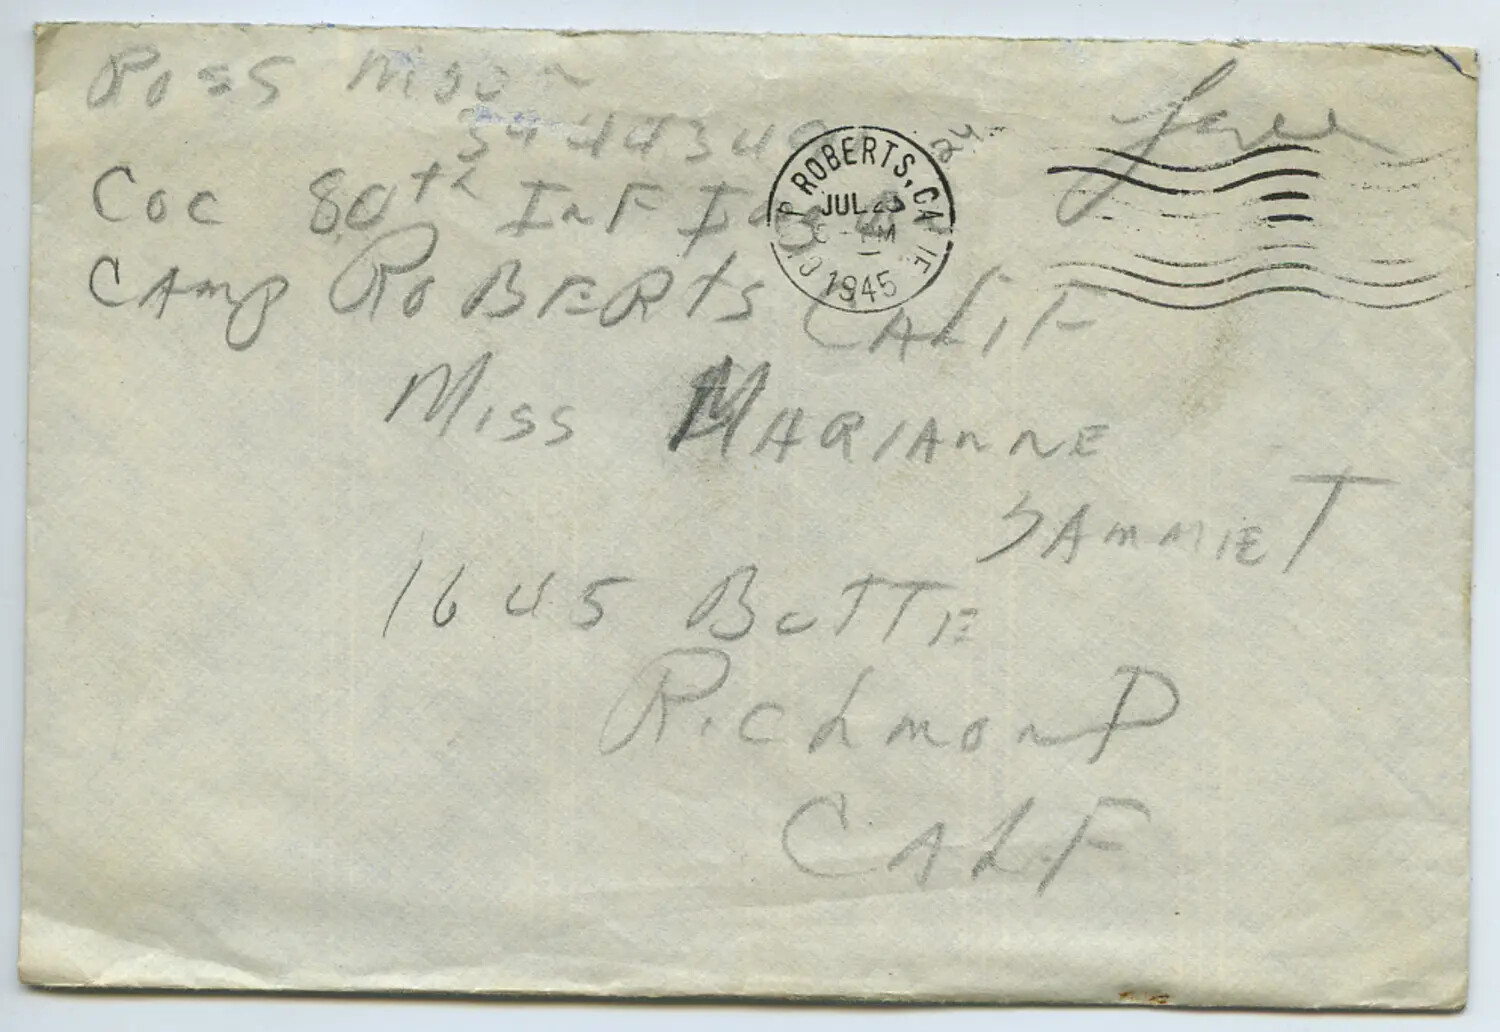 Ross
Free
CoC 80th INF
CAMP ROBERTS CALIF
CAMP ROBERTS, CALIF.
JUL 23
PM
1945
Miss MARIANNE
SAMMIET
1645 BUTTE
RichmonD
CALF